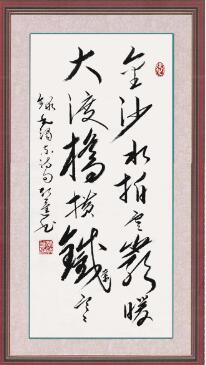 金沙水拍云崖暖
大渡橋横鐵索寒
錄毛澤东詩句